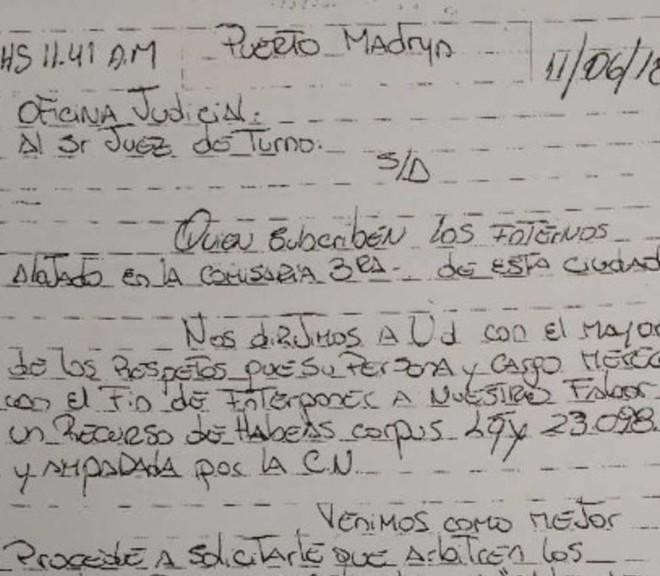 HS 11.41 A.M Puerto Madryn 11/06/18
Oficina Judicial:
Al Sr Juez de Turno.
S/D
Quien Subscriben los Internos
Alojado en la Comisaria 3RA- de ESTA Ciudad
Nos dirijimos A Ud con el Mayor
de los Respetos que Su Persona y CArgo Merece
con el Fin de Interponer A Nuestro Fabor
un Recurso de Habeas corpus Ley 23.098.
y AMPADADA por la C.N.
Venimos como Mejor
Procede A Solicitarle que Arbitren los